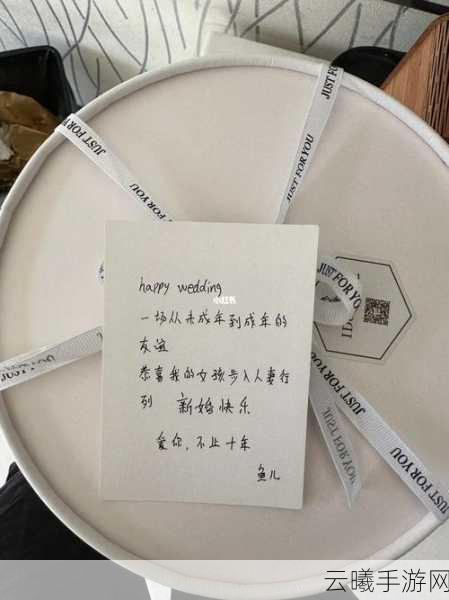 JUST FOR YOU
JUST FOR YOU
JUST FOR YOU
JUST FOR YOU
JUST FOR YOU
JUST FOR YOU
happy wedding
小红书
一场从未成年到成年的
友谊
恭喜我的女孩步入人妻行
列 新婚快乐
爱你,不止十年
鱼儿
云曦手游网